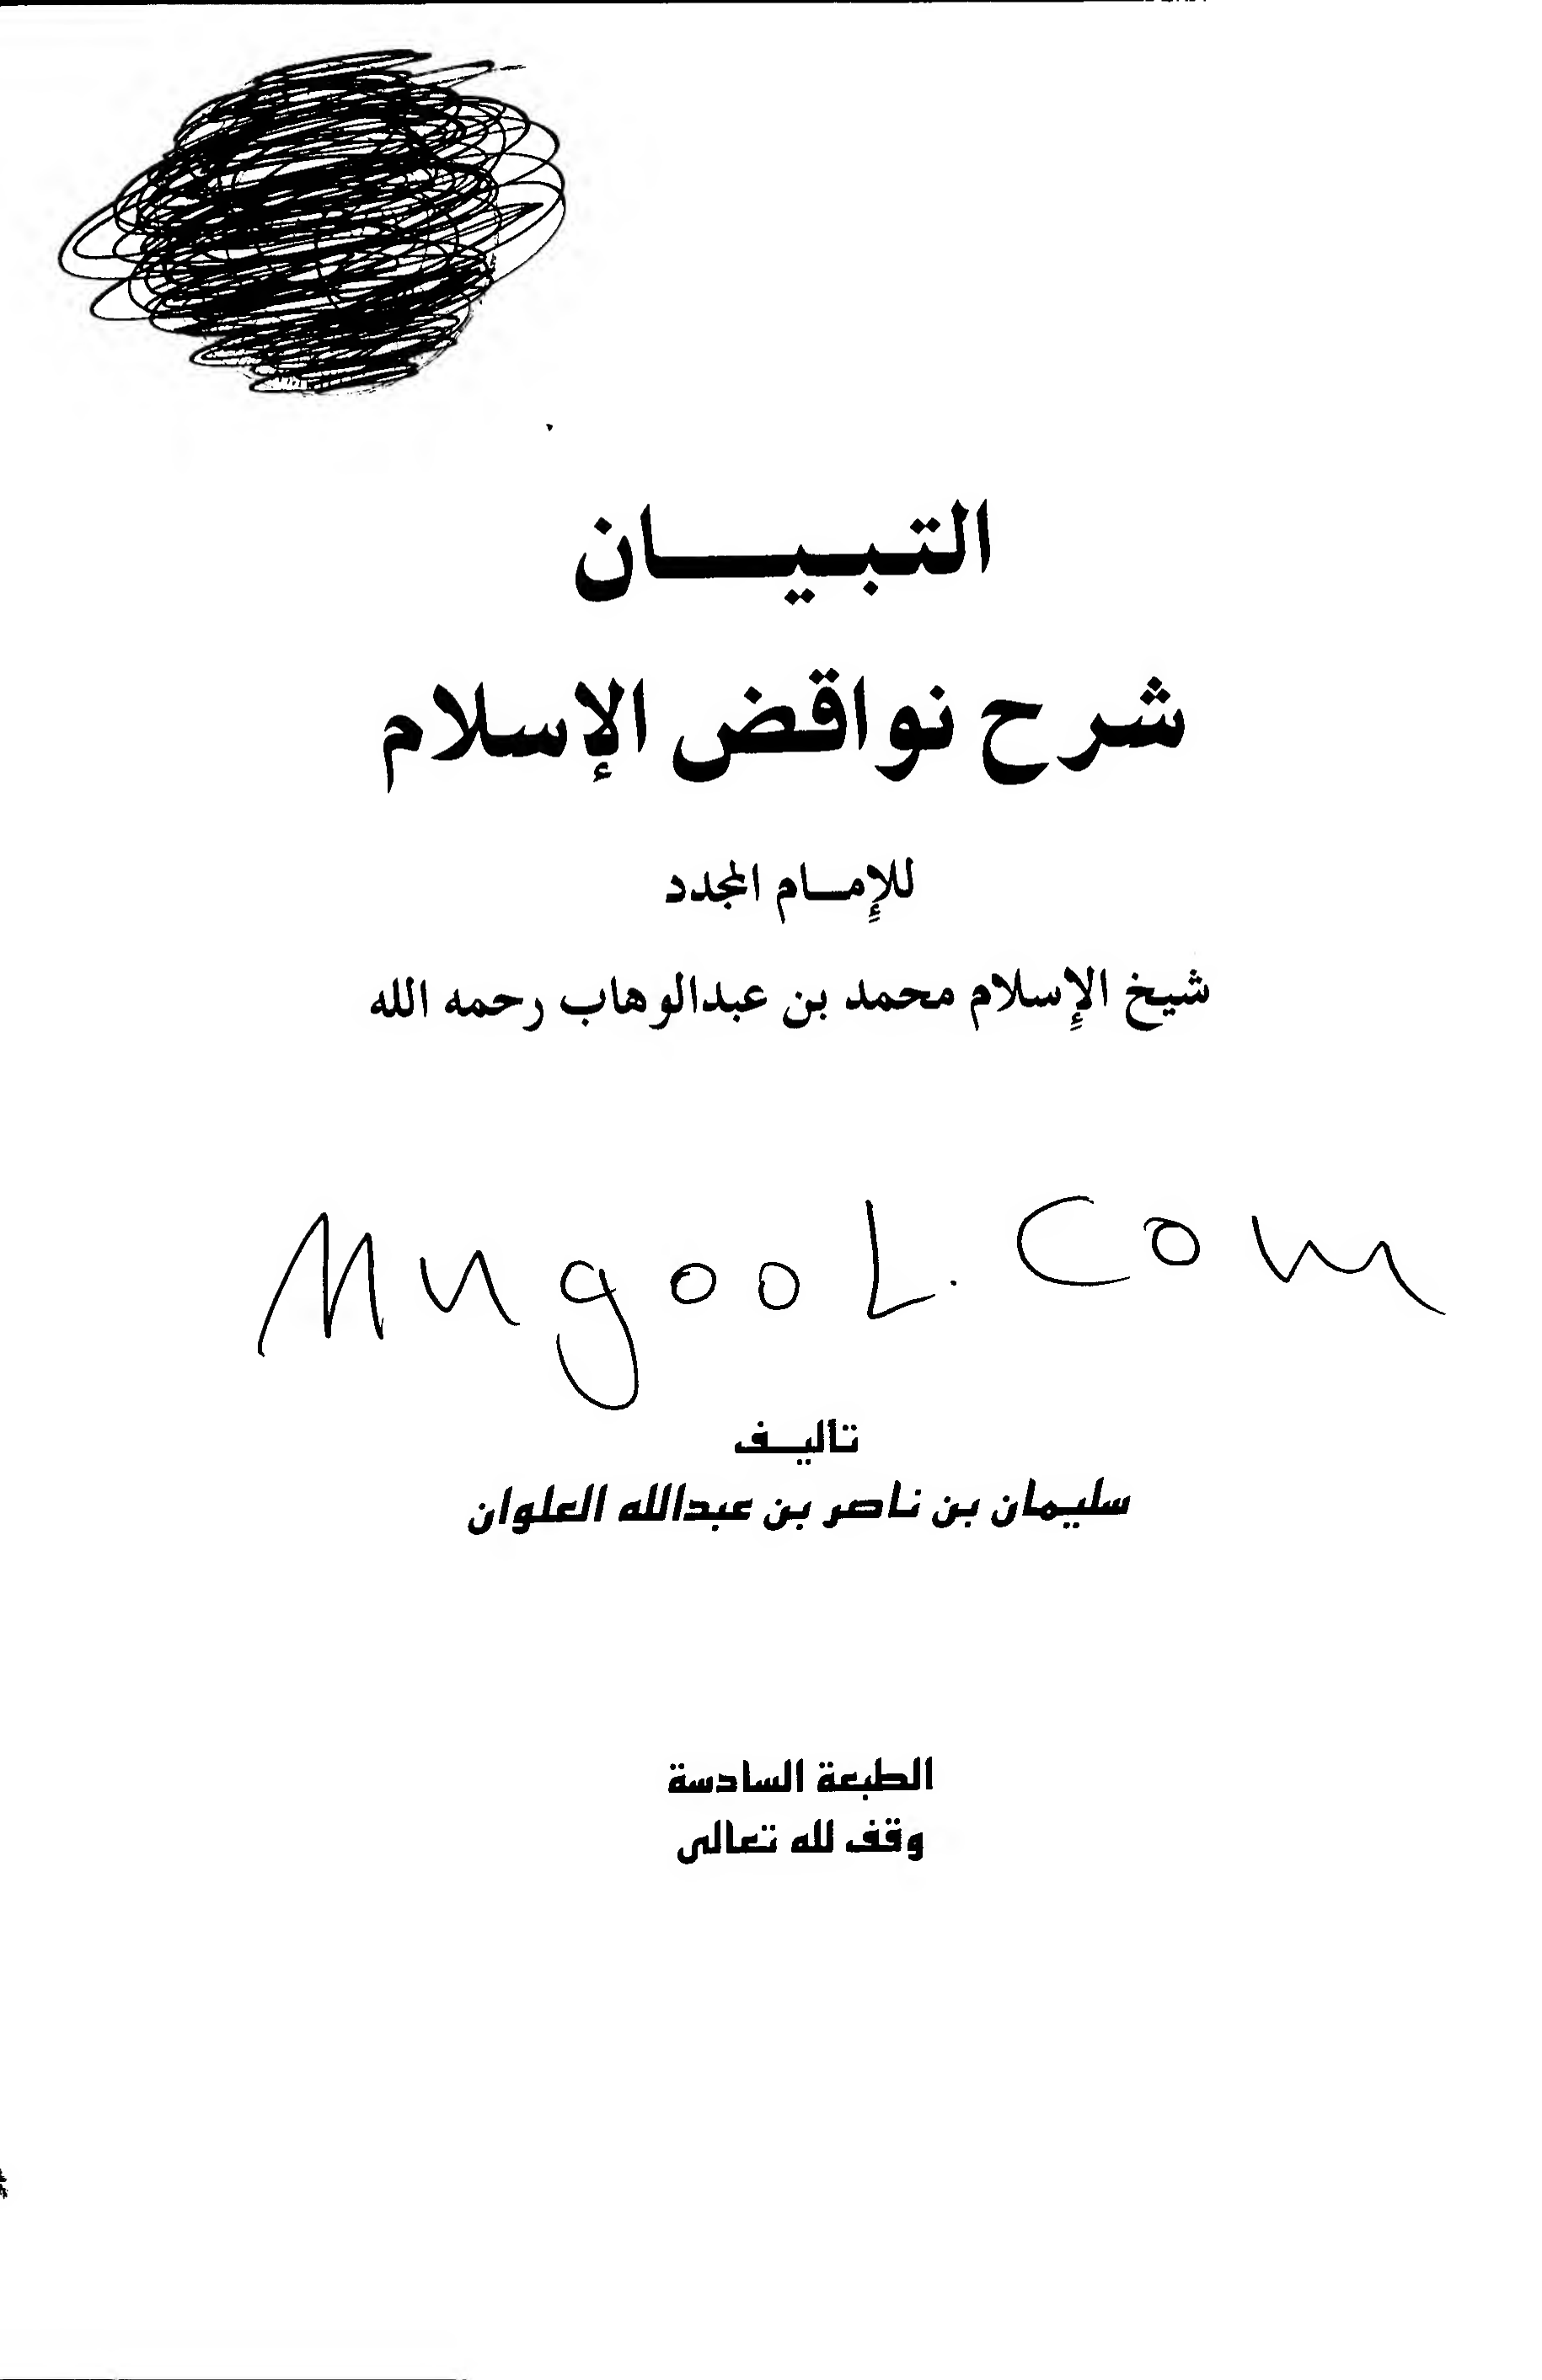 التبيان
شرح نواقض الإسلام
للإمام المجدد
شيخ الإسلام محمد بن عبدالوهاب رحمه الله
MugooL.Com
تأليف
سليمان بن ناصر بن عبدالله العلوان
الطبعة السادسة
وقف لله تعالى